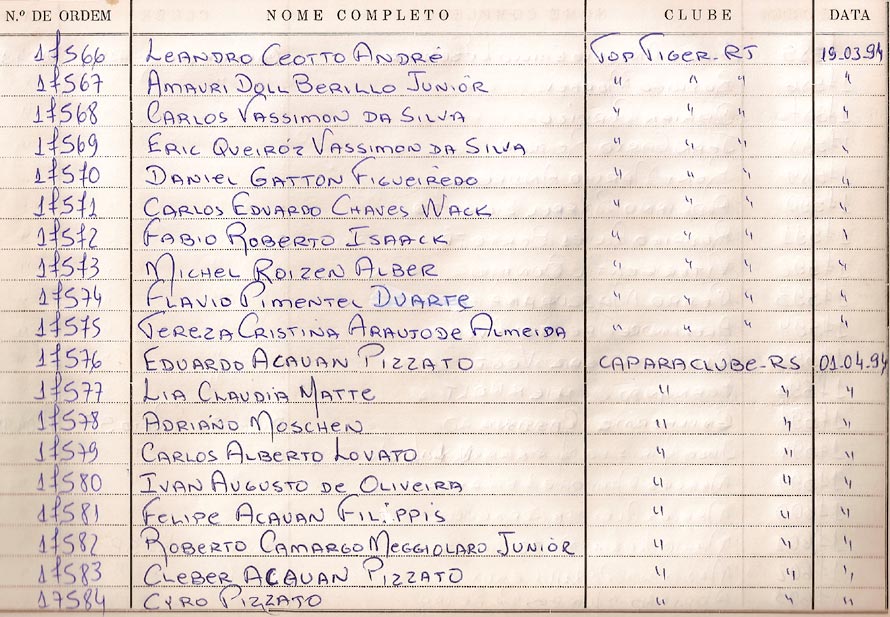 N.º DE ORDEM NOME COMPLETO CLUBE DATA
17566 LEANDRO CEOTTO ANDRÉ TOP TIGER-RJ 19.03.94
17567 AMAURI DOLL BERILLO JUNIOR " " " "
17568 CARLOS VASSIMON DA SILVA " " " "
17569 ERIC QUEIRÓZ VASSIMON DA SILVA " " " "
17570 DANIEL GATTON FIGUEIREDO " " " "
17571 CARLOS EDUARDO CHAVES WACK " " " "
17572 FABIO ROBERTO ISAACK " " " "
17573 MICHEL ROIZEN ALBER " " " "
17574 FLAVIO PIMENTEL DUARTE " " " "
17575 TEREZA CRISTINA ARAUJO DE ALMEIDA " " " "
17576 EDUARDO ACAUAN PIZZATO CAPARACLUBE-RS 01.04.94
17577 LIA CLAUDIA MATTE " " "
17578 ADRIANO MOSCHEN " " "
17579 CARLOS ALBERTO LOVATO " " "
17580 IVAN AUGUSTO DE OLIVEIRA " " "
17581 FELIPE ACAUAN FILIPPIS " " "
17582 ROBERTO CAMARGO MEGGIOLARO JUNIOR " " "
17583 CLEBER ACAUAN PIZZATO " " "
17584 CYRO PIZZATO " " "